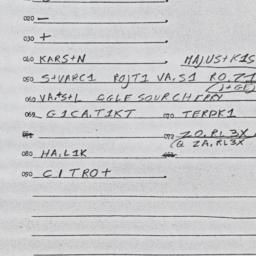 020 —
030 +
040 KARS+N MAJUS+K1S
050 S+VARC1 ROJT1 VA,S1 RO,Z1
(J+GL)
060 VA,+S+L
069 G1CA,T1KT 070 TERPK1
072 ZO,RL3X
(Q ZA,RL3X
080 HA,L1K
090 C1TRO+